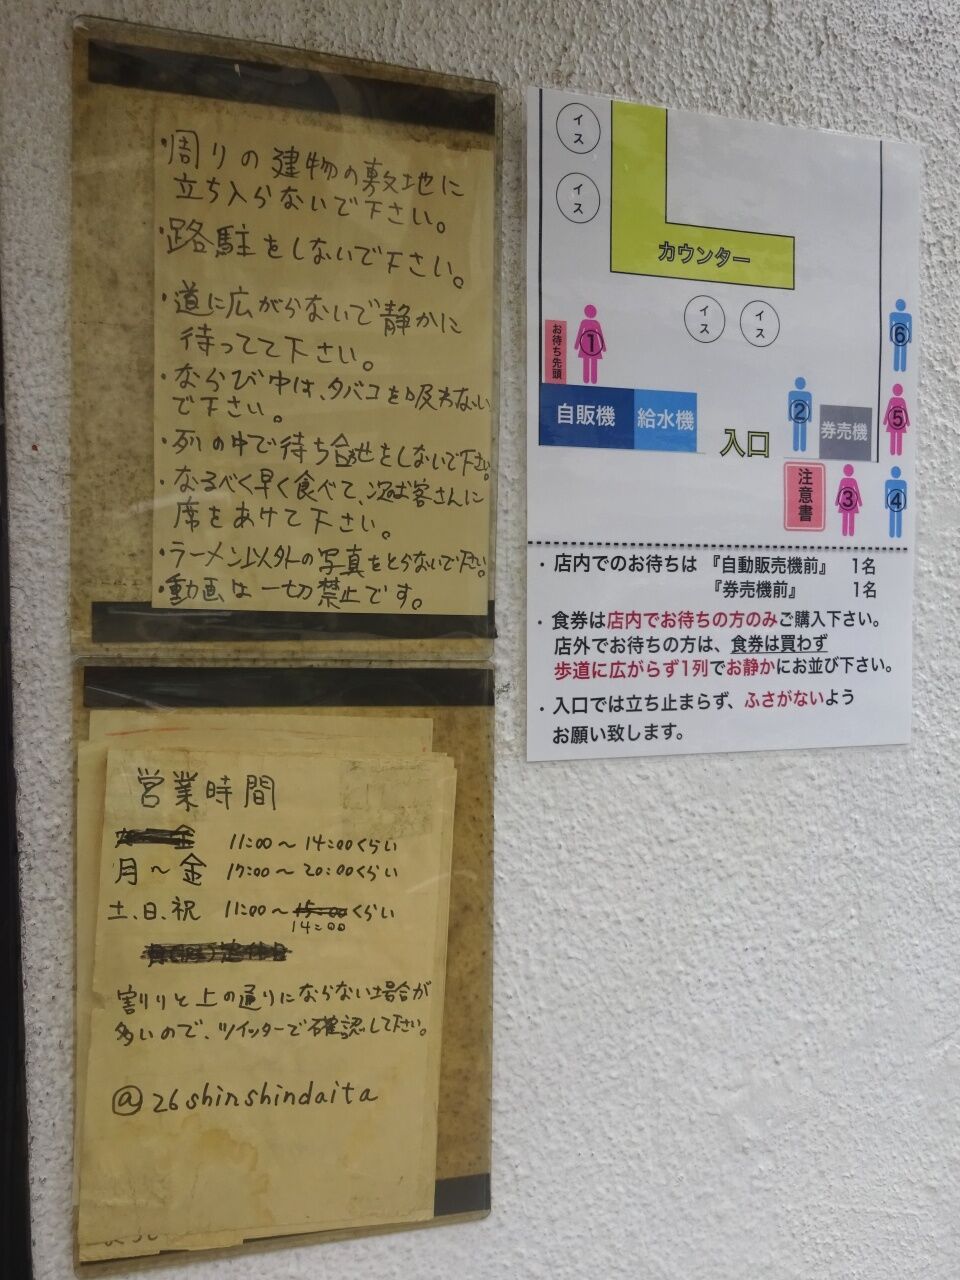 ・周りの建物の敷地に
立ち入らないで下さい。
・路駐をしないで下さい。
・道に広がらないで静かに
待ってて下さい。
・ならび中は、タバコを吸わない
で下さい。
・列の中で待ち合せをしないで下さい。
・なるべく早く食べて、次のお客さんに
席をあけて下さい。
・ラーメン以外の写真をとらないで下さい。
・動画は一切禁止です。
営業時間
11:00～14:00くらい
月～金 17:00～20:00くらい
土、日、祝 11:00～15:00くらい
14:00
割りと上の通りにならない場合が
多いので、ツイッターで確認して下さい。
@26shinshindaita
イス
イス
カウンター
イス
イス
お待ち先頭
①
⑥
自販機
給水機
入口
②
券売機
⑤
注意書
③
④
・店内でのお待ちは 『自動販売機前』 1名
『券売機前』 1名
・食券は店内でお待ちの方のみご購入下さい。
店外でお待ちの方は、食券は買わず
歩道に広がらず1列でお静かにお並び下さい。
・入口では立ち止まらず、ふさがないよう
お願い致します。